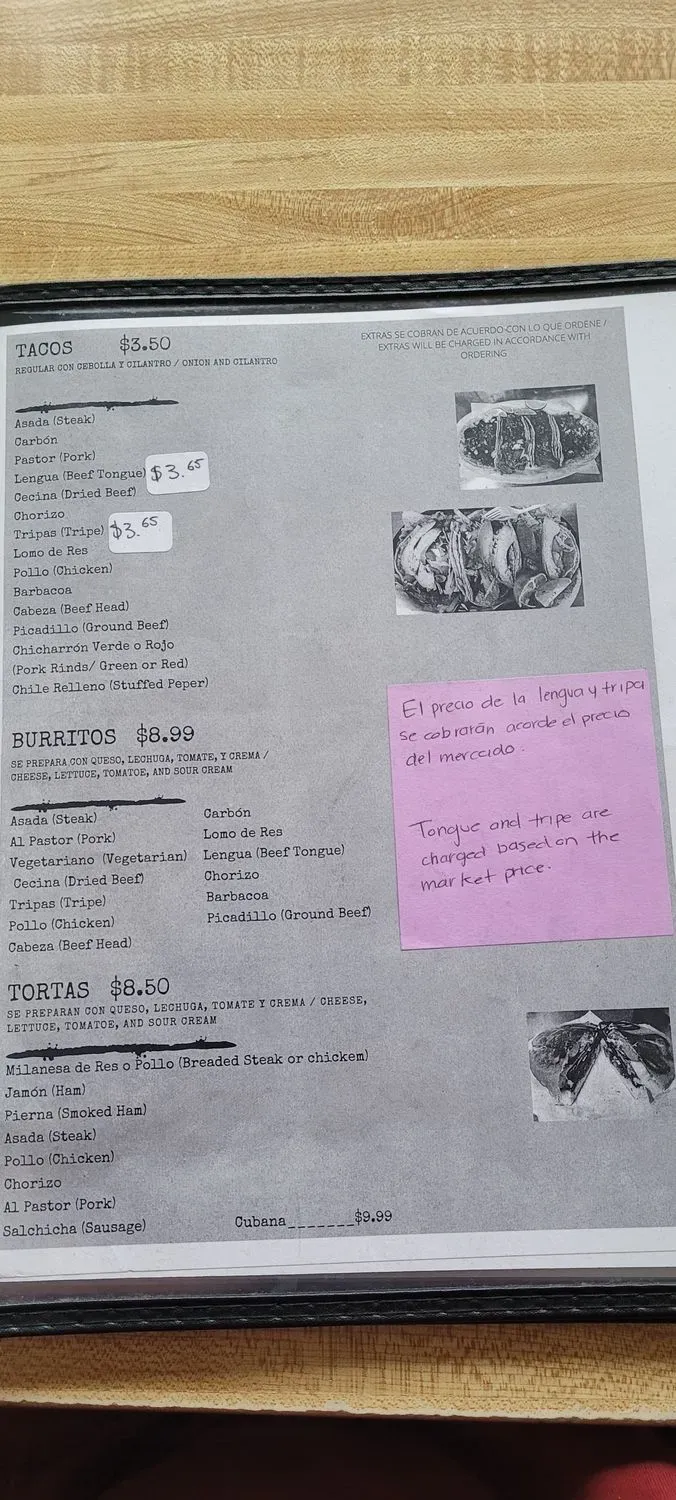 TACOS $3.50
REGULAR CON CEBOLLA Y CILANTRO / ONION AND CILANTRO
EXTRAS SE COBRAN DE ACUERDO CON LO QUE ORDENE /
EXTRAS WILL BE CHARGED IN ACCORDANCE WITH
ORDERING
Asada (Steak)
Carbón
Pastor (Pork)
Lengua (Beef Tongue) $3.65
Cecina (Dried Beef)
Chorizo
Tripas (Tripe) $3.65
Lomo de Res
Pollo (Chicken)
Barbacoa
Cabeza (Beef Head)
Picadillo (Ground Beef)
Chicharrón Verde o Rojo
(Pork Rinds/ Green or Red)
Chile Relleno (Stuffed Peper)
El precio de la lengua y tripa
se cobrarán acorde el precio
del mercado.
Tongue and tripe are
charged based on the
market price.
BURRITOS $8.99
SE PREPARA CON QUESO, LECHUGA, TOMATE, Y CREMA /
CHEESE, LETTUCE, TOMATOE, AND SOUR CREAM
Asada (Steak)
Al Pastor (Pork)
Vegetariano (Vegetarian)
Cecina (Dried Beef)
Tripas (Tripe)
Pollo (Chicken)
Cabeza (Beef Head)
Carbón
Lomo de Res
Lengua (Beef Tongue)
Chorizo
Barbacoa
Picadillo (Ground Beef)
TORTAS $8.50
SE PREPARAN CON QUESO, LECHUGA, TOMATE Y CREMA / CHEESE,
LETTUCE, TOMATOE, AND SOUR CREAM
Milanesa de Res o Pollo (Breaded Steak or chickem)
Jamón (Ham)
Pierna (Smoked Ham)
Asada (Steak)
Pollo (Chicken)
Chorizo
Al Pastor (Pork)
Salchicha (Sausage)
Cubana_______$9.99